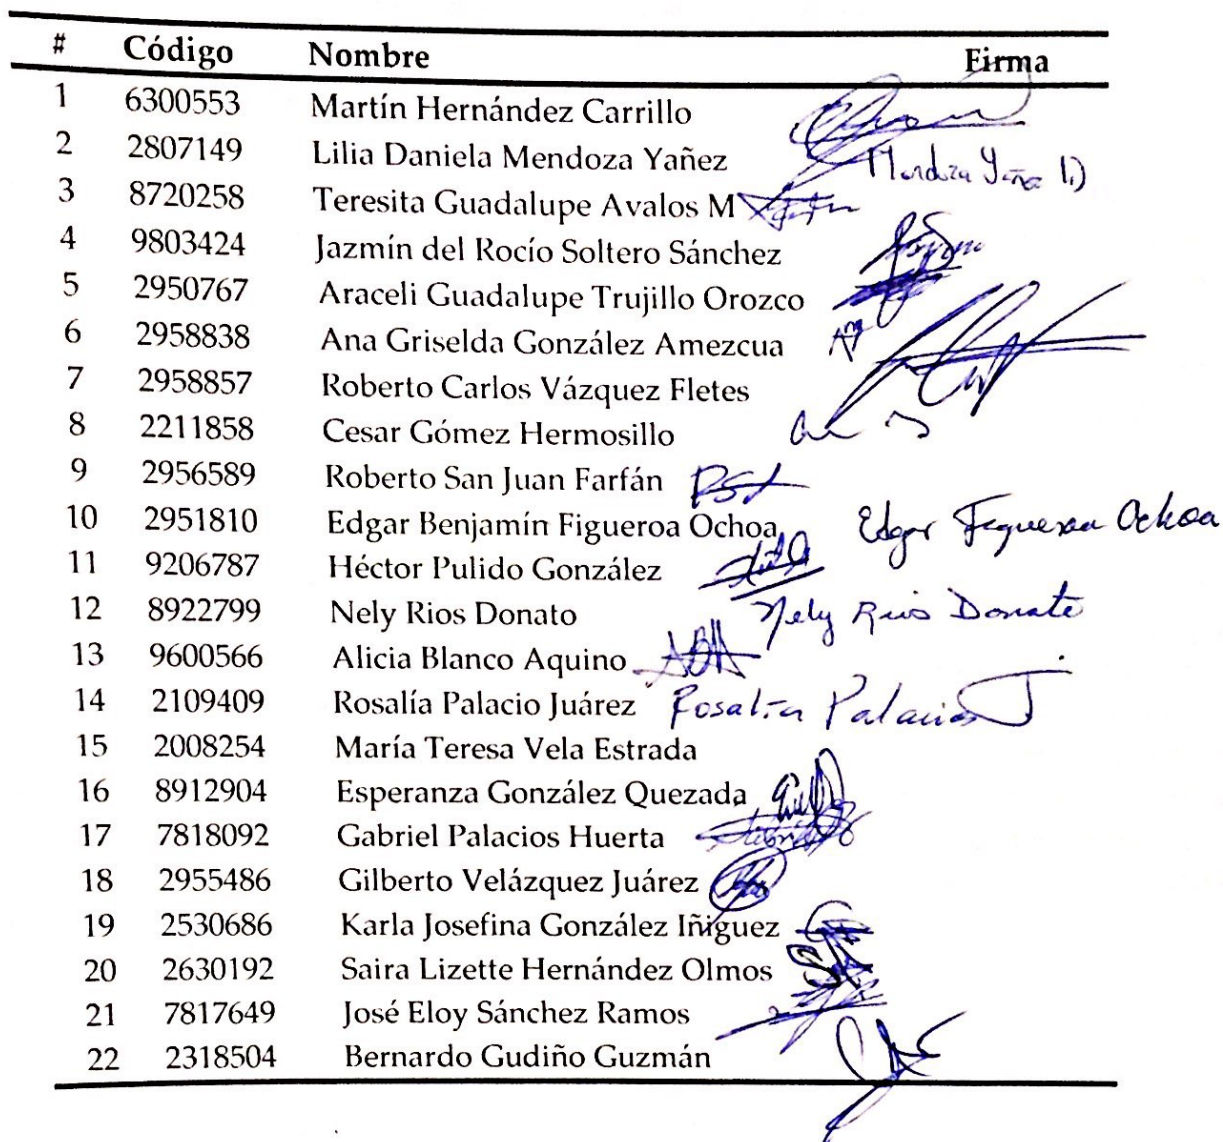 # Código Nombre Firma
1 6300553 Martín Hernández Carrillo
2 2807149 Lilia Daniela Mendoza Yañez Mendoza Yañez D
3 8720258 Teresita Guadalupe Avalos M
4 9803424 Jazmín del Rocío Soltero Sánchez
5 2950767 Araceli Guadalupe Trujillo Orozco
6 2958838 Ana Griselda González Amezcua
7 2958857 Roberto Carlos Vázquez Fletes
8 2211858 Cesar Gómez Hermosillo
9 2956589 Roberto San Juan Farfán
10 2951810 Edgar Benjamín Figueroa Ochoa Edgar Figueroa Ochoa
11 9206787 Héctor Pulido González
12 8922799 Nely Rios Donato Nely Rios Donato
13 9600566 Alicia Blanco Aquino
14 2109409 Rosalía Palacio Juárez Rosalía Palacios J
15 2008254 María Teresa Vela Estrada
16 8912904 Esperanza González Quezada
17 7818092 Gabriel Palacios Huerta
18 2955486 Gilberto Velázquez Juárez
19 2530686 Karla Josefina González Iñiguez
20 2630192 Saira Lizette Hernández Olmos
21 7817649 José Eloy Sánchez Ramos
22 2318504 Bernardo Gudiño Guzmán